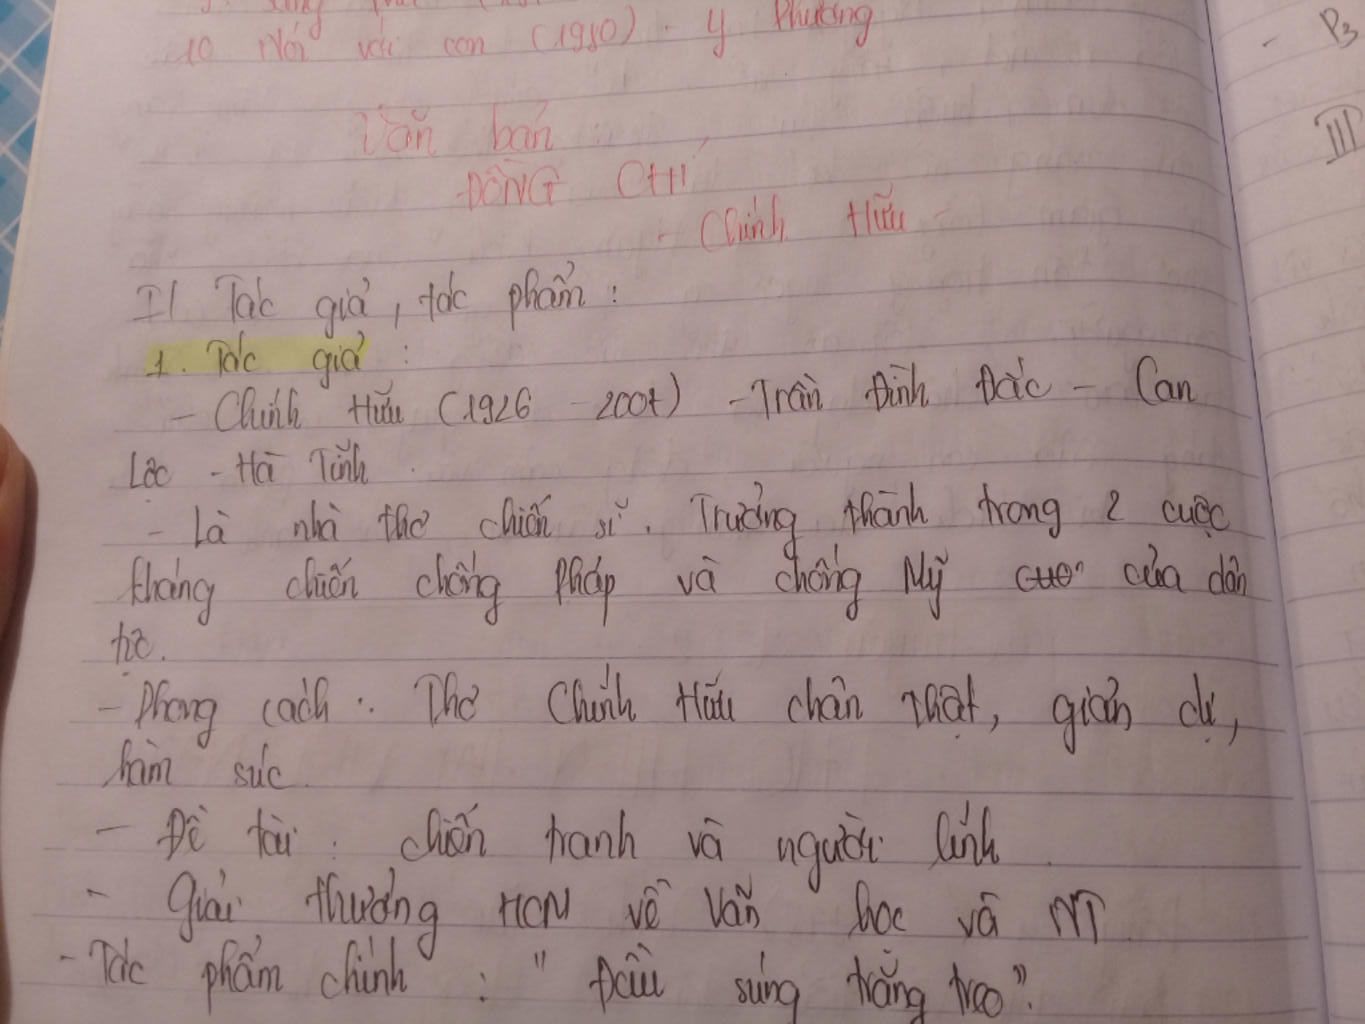 10 Nói với con (1980) - Y Phương
Văn bản :
ĐỒNG CHÍ
- Chính Hữu -
I/ Tác giả, tác phẩm :
1. Tác giả :
- Chính Hữu (1926 - 2007) - Trần Đình Đắc - Can
Lộc - Hà Tĩnh
- Là nhà thơ chiến sĩ. Trưởng thành trong 2 cuộc
kháng chiến chống Pháp và chống Mỹ của dân
tộc.
- Phong cách : Thơ Chính Hữu chân thật, giản dị,
hàm súc
- Đề tài : chiến tranh và người lính
- Giải thưởng HCM về Văn học và NT
- Tác phẩm chính : " Đầu súng trăng treo".
P3
III